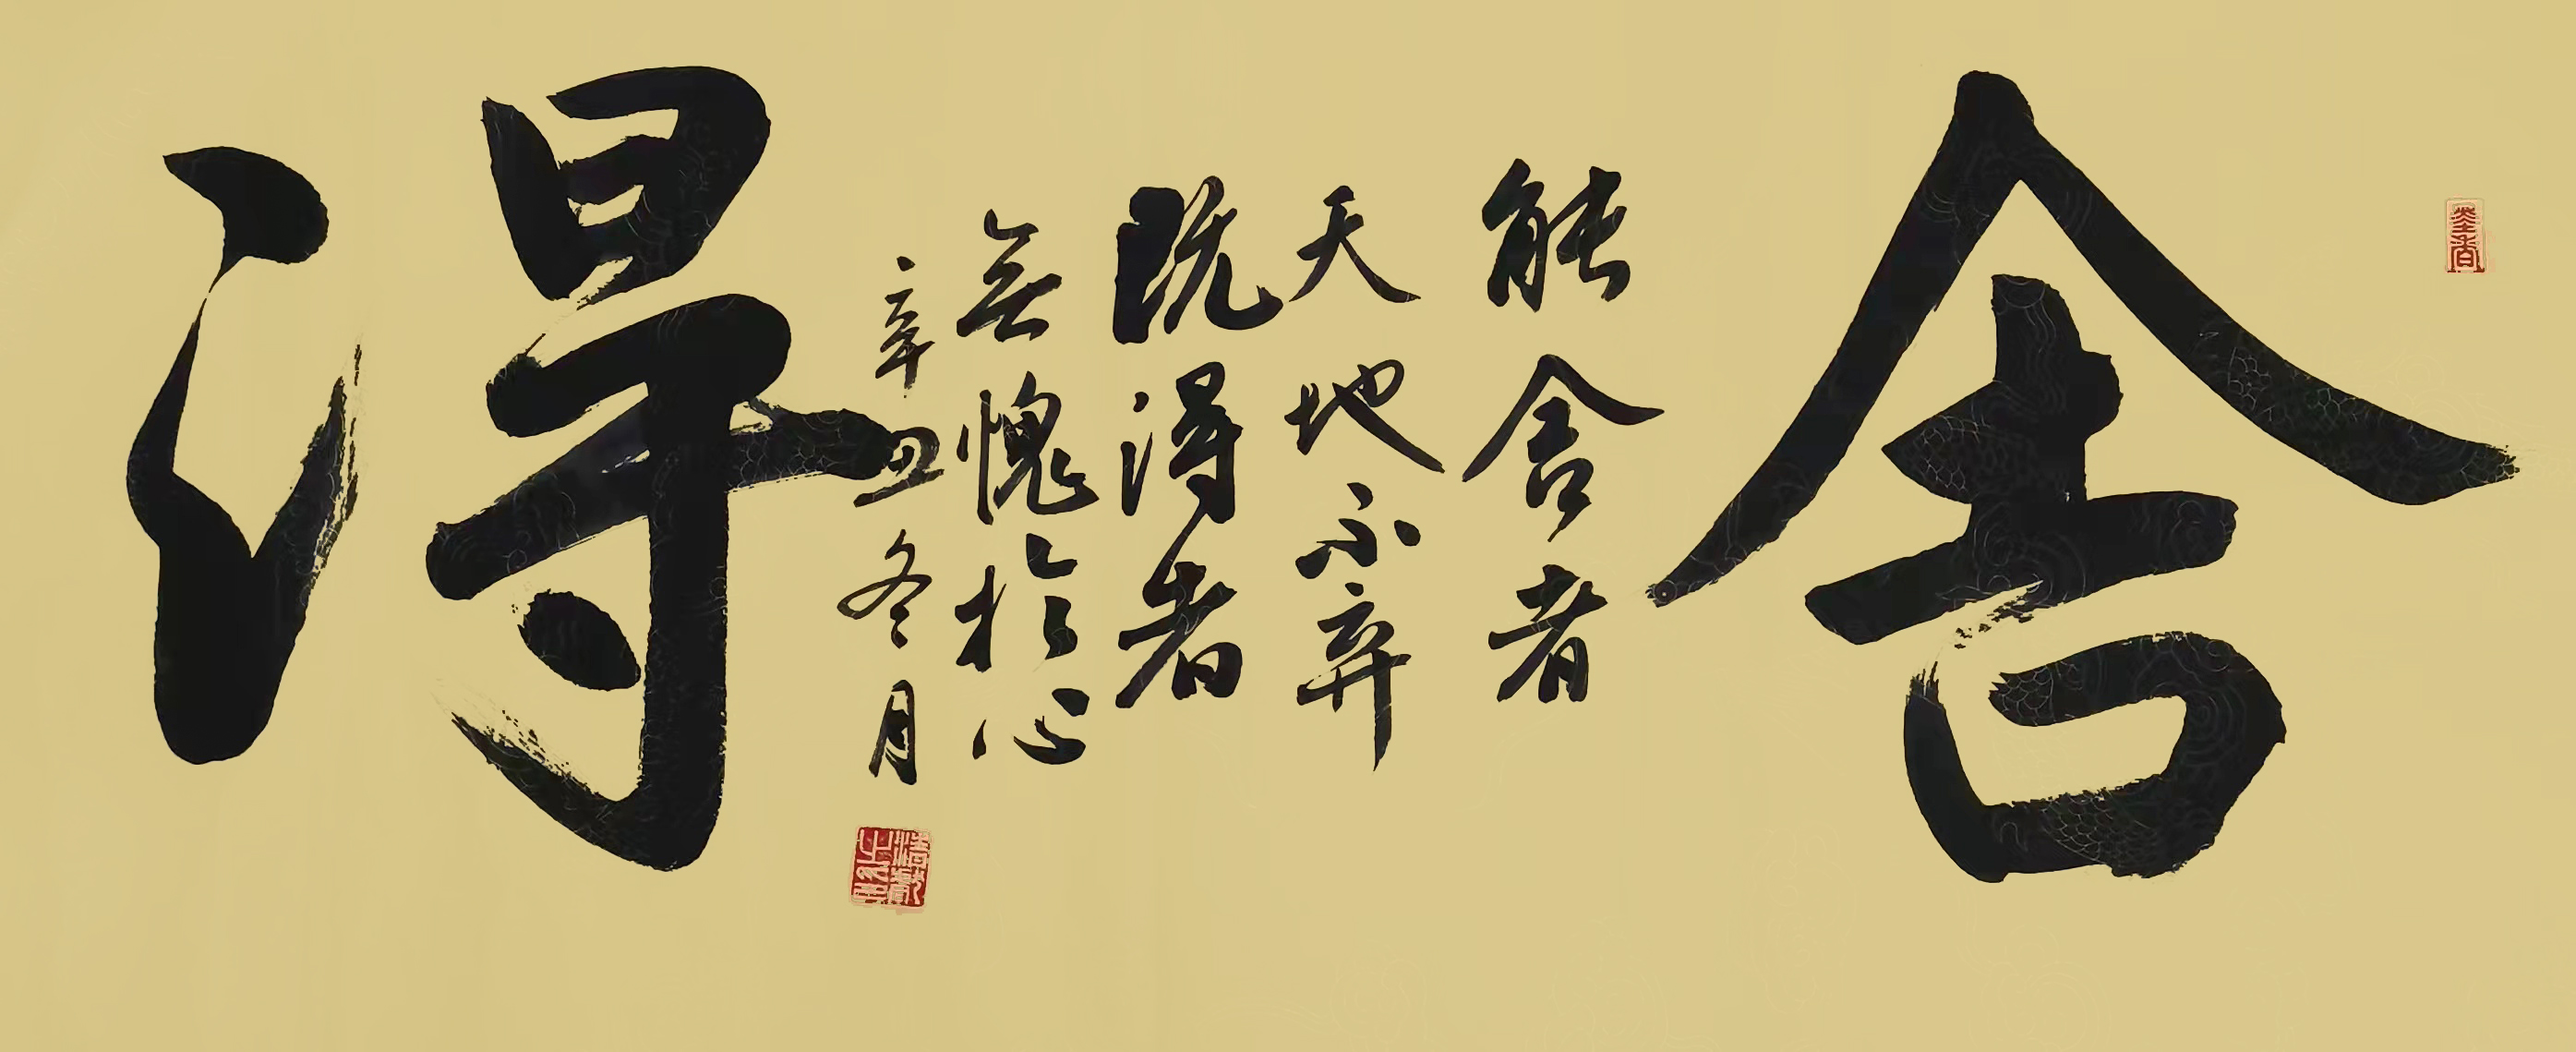 舍
能舍者
天地不弃
既得者
無愧於心
辛丑冬月
得